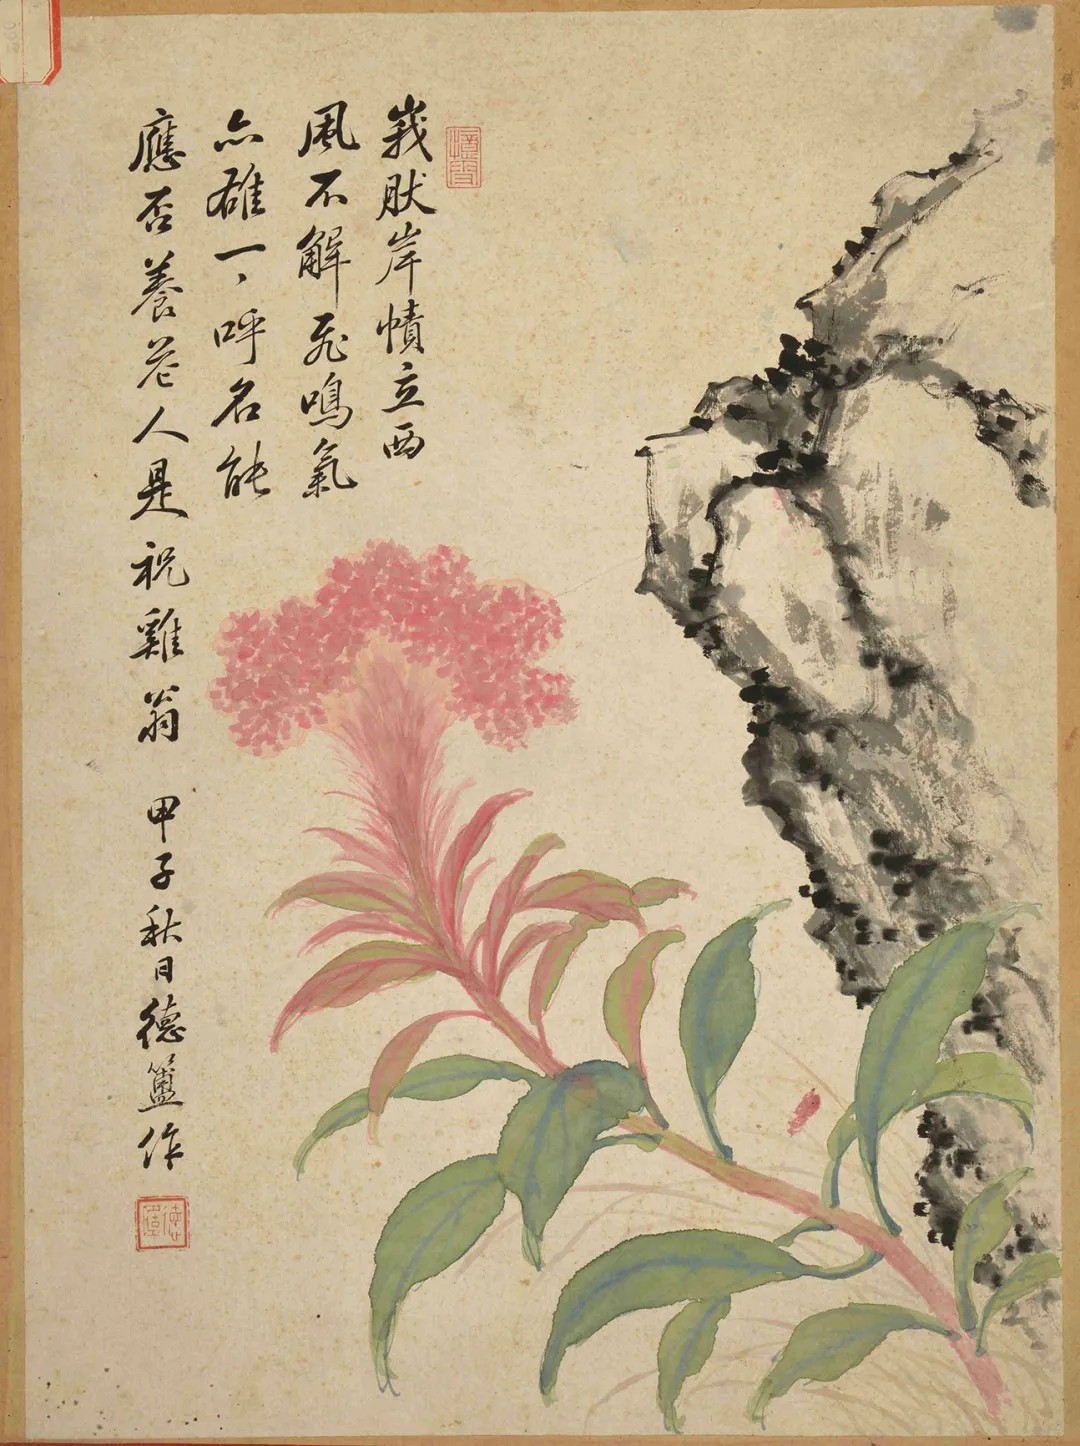 峩肰岸幘立西
風不解飛鳴氣
亦雄一、呼名能
應否養花人是祝雞翁 甲子秋日德作